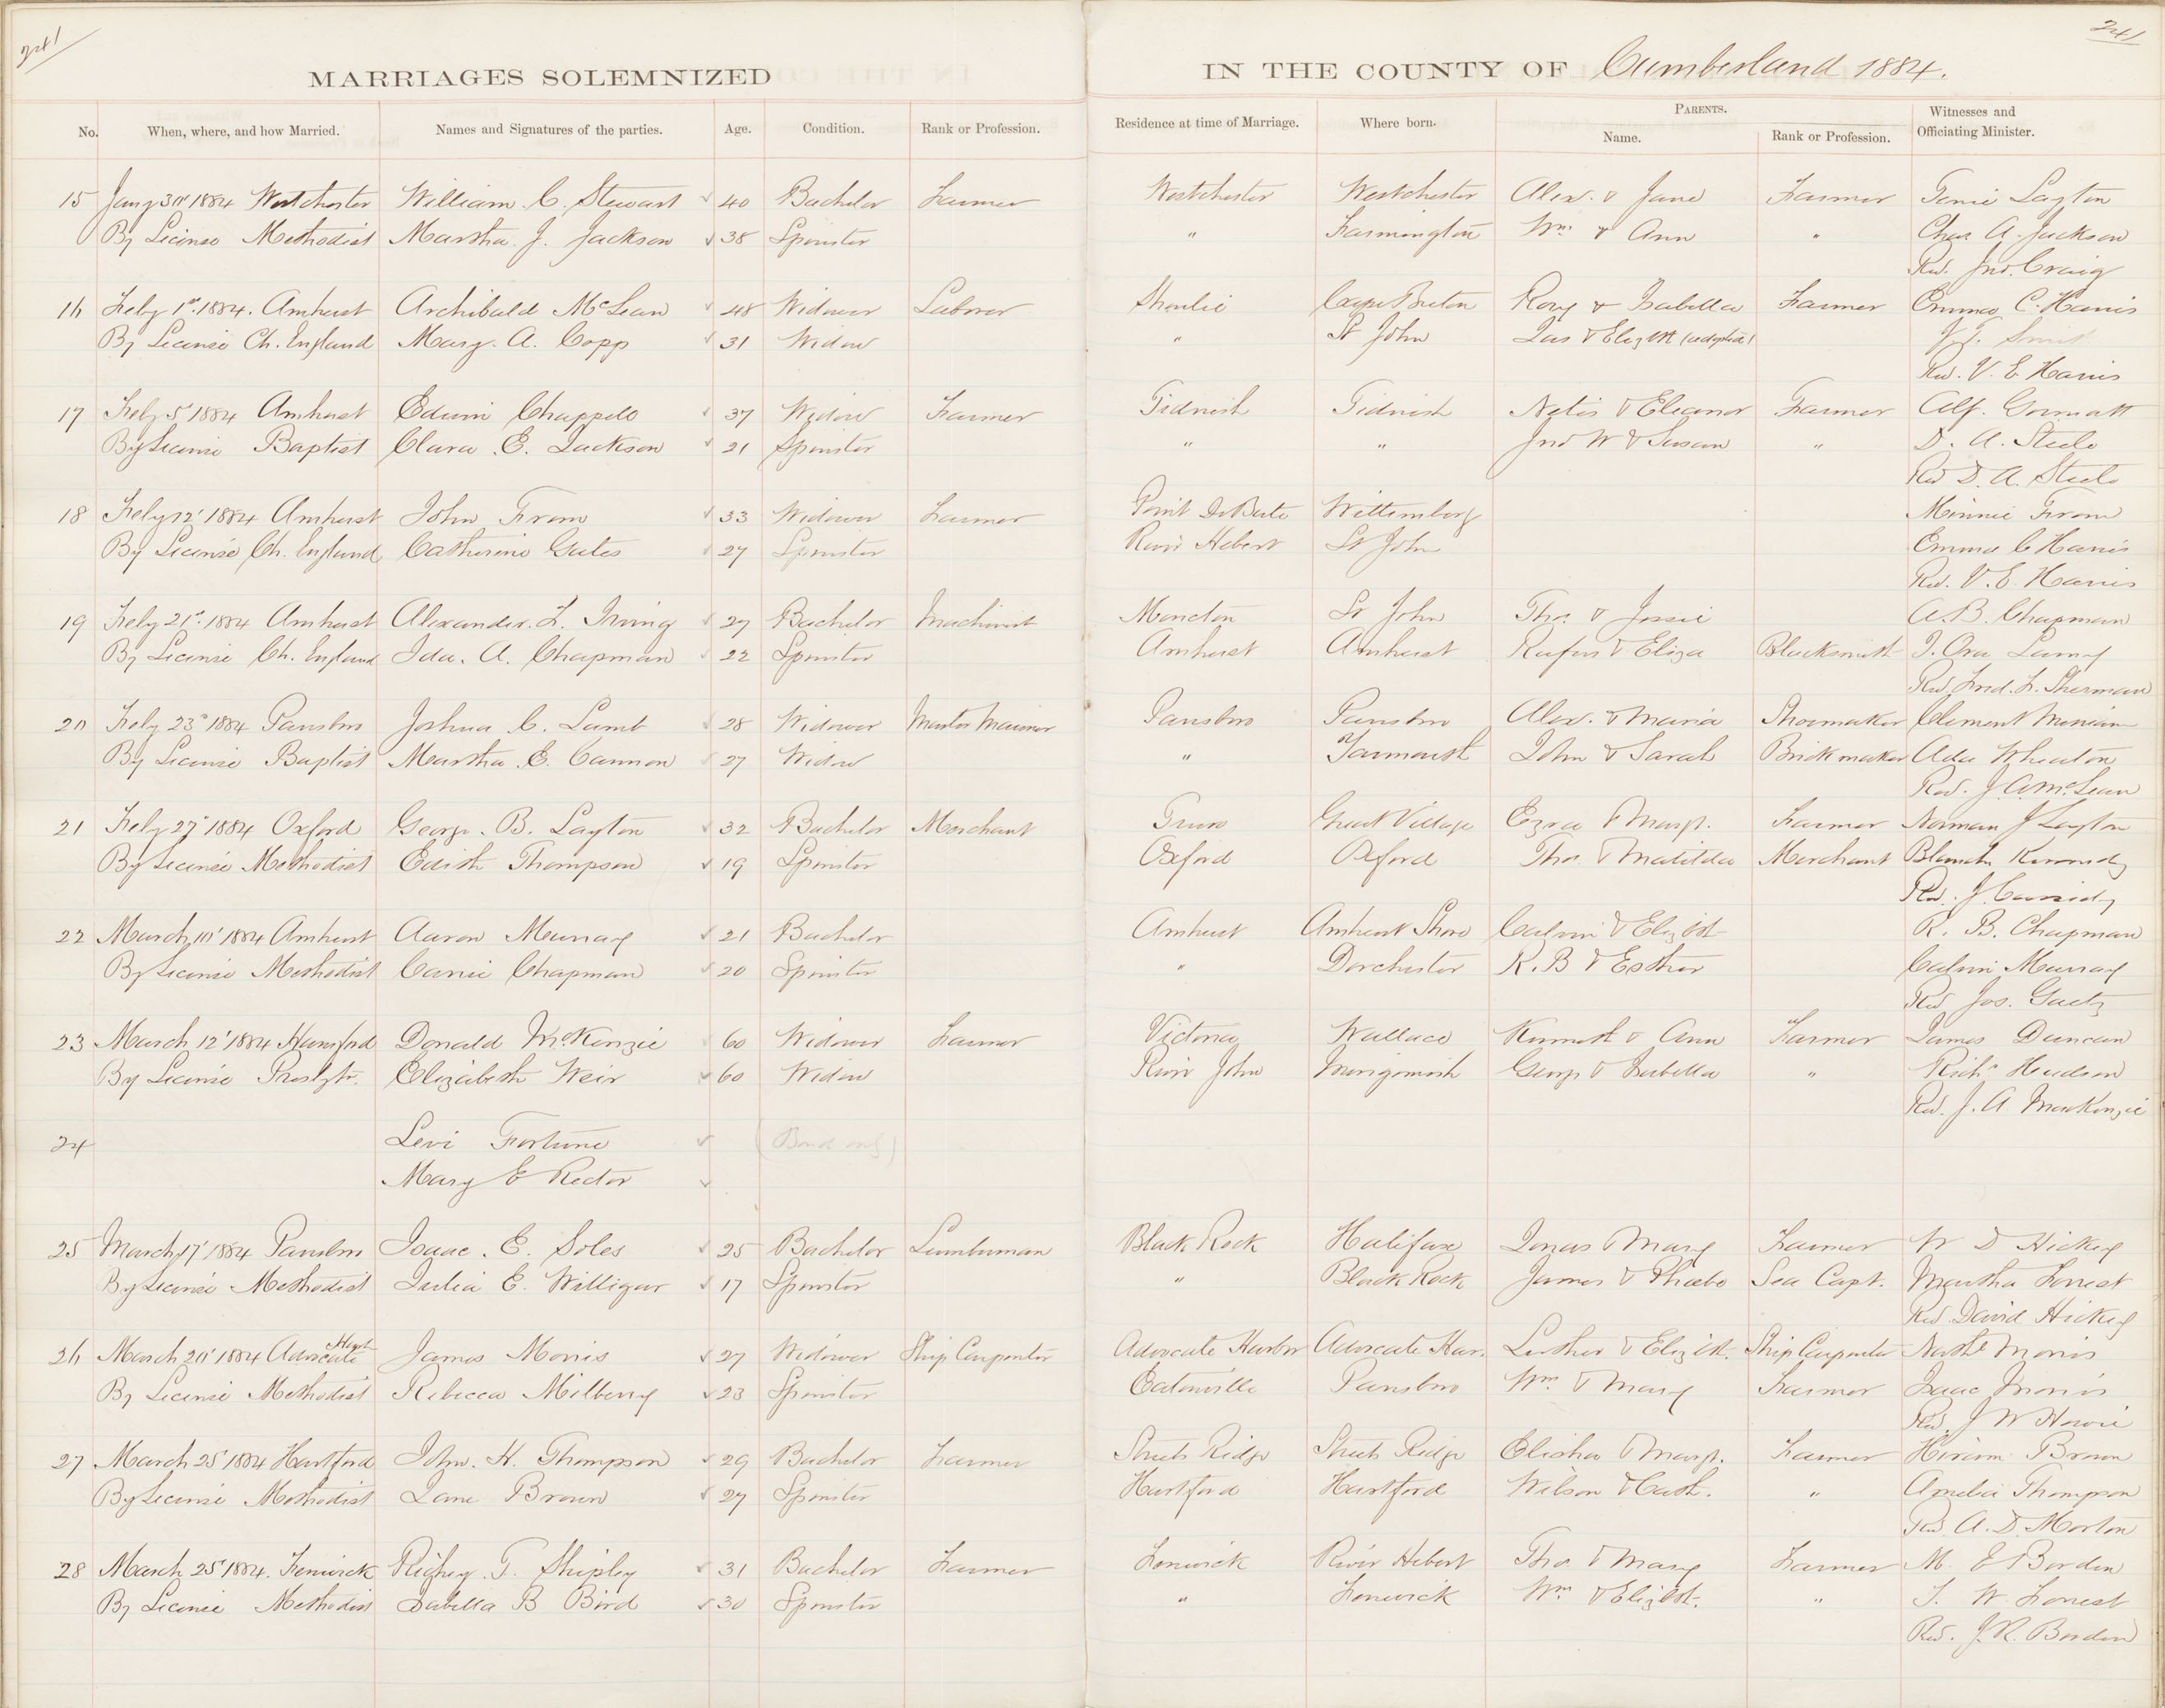 241
241
MARRIAGES SOLEMNIZED IN THE COUNTY OF Cumberland 1884.
No. When, where, and how Married. Names and Signatures of the parties. Age. Condition. Rank or Profession. Residence at time of Marriage. Where born. PARENTS. Name. Rank or Profession. Witnesses and Officiating Minister.
15 Jany 30' 1884 Westchester William C. Stewart 40 Bachelor Farmer Westchester Westchester Alex. & Jane Farmer Tenie Layton
By License Methodist Martha J. Jackson 38 Spinster " Farmington Wm & Ann " Chas A. Jackson
Rev. Jno. Craig
16 Feby 1st 1884. Amherst Archibald McLean 48 Widower Laborer Shulie Cape Breton Rory & Isabella Farmer Emma C. Harris
By License Ch. England Mary. A. Copp 31 Widow " St John Jas & Elizth (adopted)
Rev. V. E. Harris
17 Feby 5' 1884 Amherst Edwin Chappelo 37 Widow Farmer Tidnish Tidnish & Eleanor Farmer Alf.
By License Baptist Clara. E. Jackson 21 Spinster " " Jno W & Susan " D. A. Steele
Rev D. A. Steele
18 Feby 12' 1884 Amherst John From 33 Widower Farmer Point DeBute Wittemberg Minnie From
By License Ch. England Catherine Gates 27 Spinster River Hebert St John Emma C Harris
Rev. V. E. Harris
19 Feby 21st 1884 Amherst Alexander. L. Irving 27 Bachelor Machinist Moncton St John Thos. & Jessie A. B. Chapman
By License Ch. England Ida. A. Chapman 22 Spinster Amherst Amherst Rufus & Eliza Blacksmith J. Ora Lamy
Rev. Fred. F. Sherman
20 Feby 23d 1884 Parrsboro Joshua C. Lamb 28 Widower Master Mariner Parrsboro Parrsboro Alex. & Maria Shoemaker Clement
By License Baptist Martha. E. Cannon 27 Widow " Yarmouth John & Sarah Brickmaker Ada Wheaton
Rev. J. A. McLean
21 Feby 27' 1884 Oxford George. B. Layton 32 Bachelor Merchant Truro Great Village Ezra & Margt. Farmer Norman J Layton
By License Methodist Edith Thompson 19 Spinster Oxford Oxford Thos. & Matilda Merchant Blanche Kennedy
Rev. J. Cassidy
22 March 10' 1884 Amherst Aaron Murray 21 Bachelor Amherst Amherst Shore Calvin & Elizbth R. B. Chapman
By License Methodist Carrie Chapman 20 Spinster " Dorchester R. B & Esther Calvin Murray
Rev Jos. Gaetz
23 March 12' 1884 Hansford Donald McKenzie 60 Widower Farmer Victoria Wallace Kenneth & Ann Farmer James Duncan
By License Presbytr. Elizabeth Weir 60 Widow River John Merigomish George & Isabella " Richd Hudson
Rev. J. A. MacKenzie
24 Levi Fortune (Bond only)
Mary E Rector
25 March 17' 1884 Parrsboro Isaac. E. Soles 25 Bachelor Lumberman Black Rock Halifax Jonas & Mary Farmer W D Hickey
By License Methodist Julia E. Willigar 17 Spinster " Black Rock James & Phoebe Sea Capt. Martha Forrest
Rev David Hickey
26 March 20' 1884 Advocate Harbr James Morris 27 Widower Ship Carpenter Advocate Harbor Advocate Har. Luther & Elizbth. Ship Carpenter Nathl Morris
By License Methodist Rebecca Milberry 23 Spinster Eatonville Parrsboro Wm & Mary Farmer Isaac Morris
Rev. J W Howie
27 March 25' 1884 Hartford John. H. Thompson 29 Bachelor Farmer Streets Ridge Streets Ridge Elisha & Margt. Farmer Hiram Brown
By License Methodist Jane Brown 27 Spinster Hartford Hartford Wilson & Cath. " Amelia Thompson
Rev. A. D. Morton
28 March 25' 1884. Fenwick Richey. T. Shipley 31 Bachelor Farmer Fenwick River Hebert Thos & Mary Farmer M. E Borden
By License Methodist Isabella B Bird 30 Spinster " Fenwick Wm & Elizbth. " T. W. Forrest
Rev. J. R. Borden